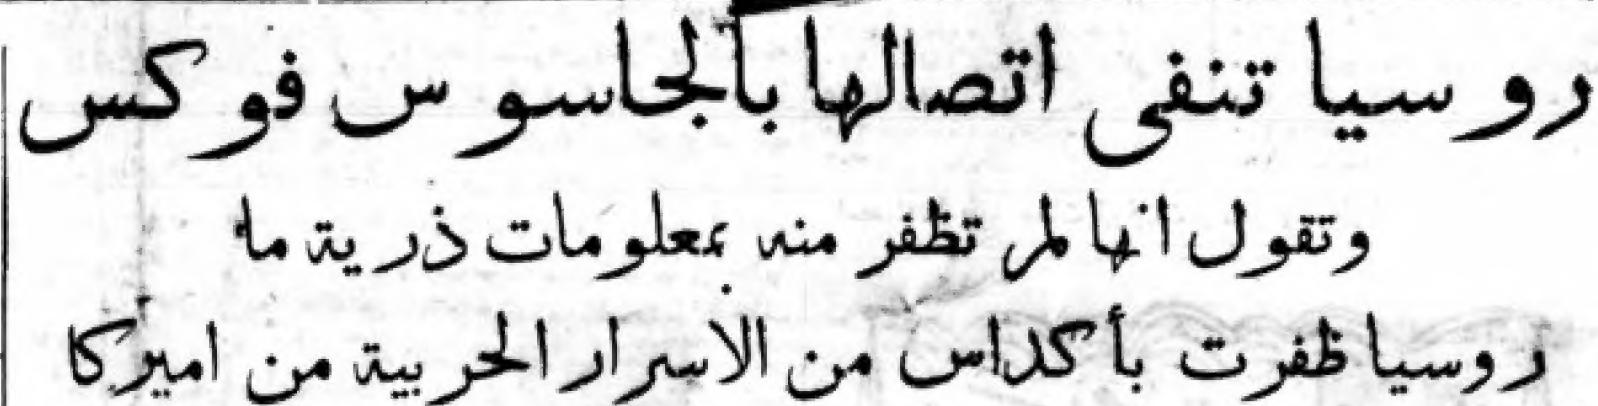 روسيا تنفى اتصالها بالجاسوس فوكس
وتقول انها لم تظفر منه بمعلومات ذرية ما
روسيا ظفرت بأكداس من الاسرار الحربية من اميركا